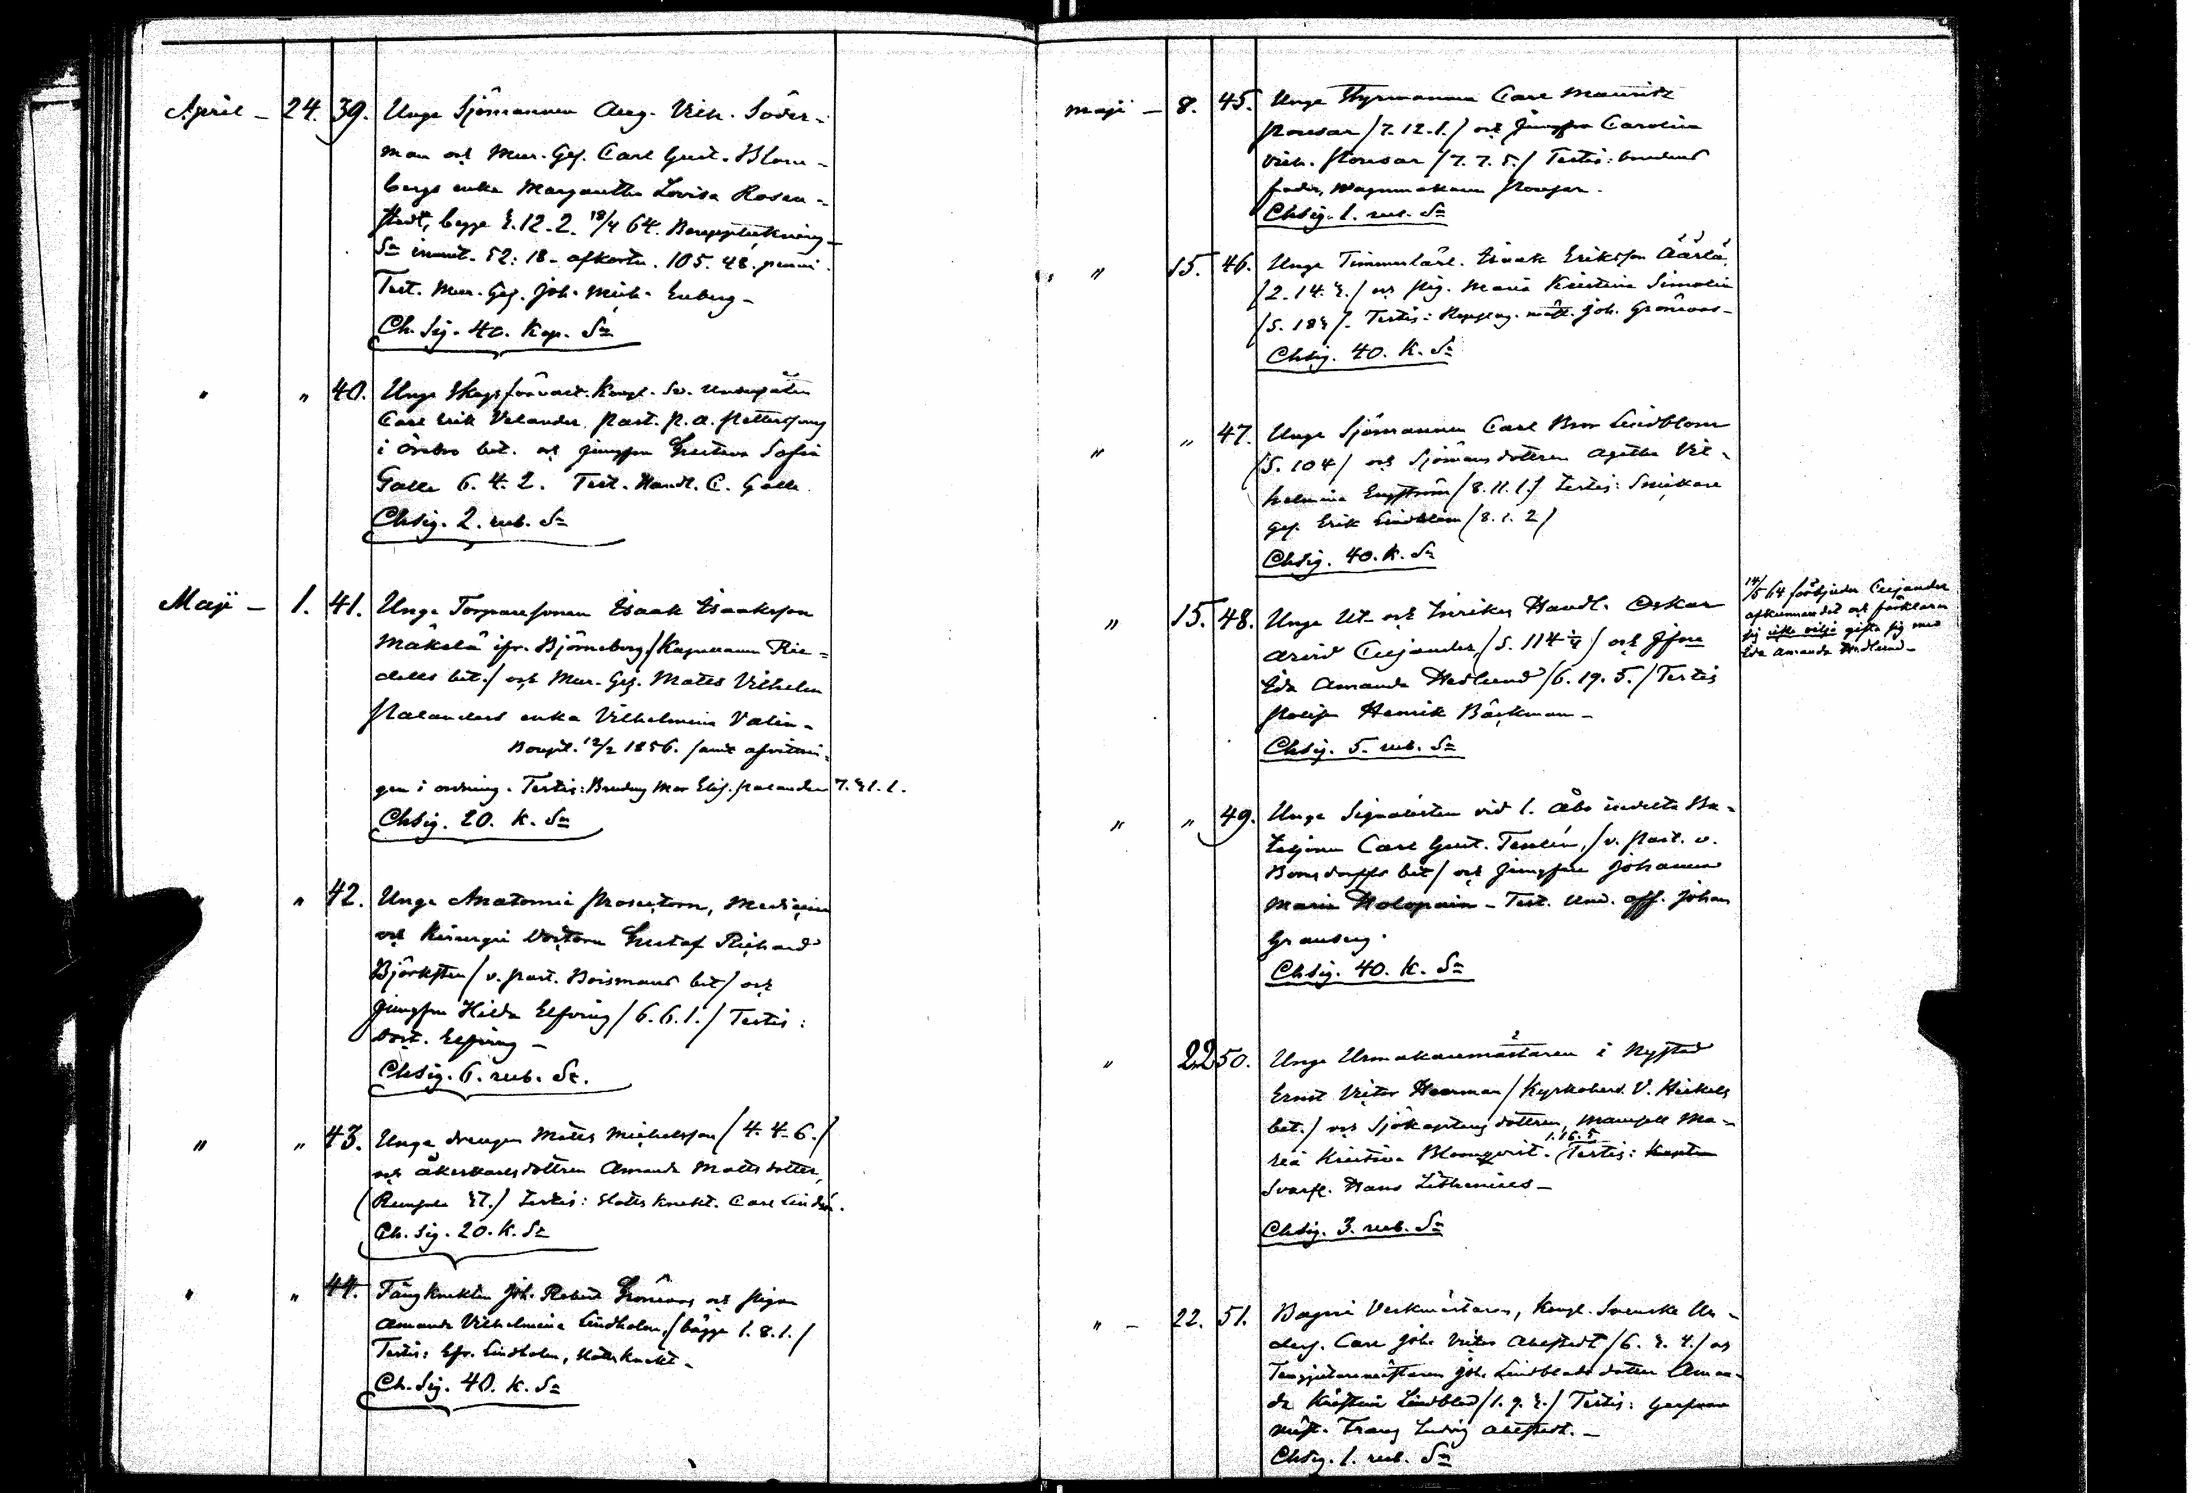 April – 24. 39. Unge Sjömannen Aug. Vilh. Söder-
man och Mur. Ges. Carl Gust. Blom-
bergs enka Margaretha Lovisa Rosen-
stedt, begge 12. 2. 18/4 64. Bouppteckning
Sn inneh. 52: 18 – afkortn. 105. 48. penni.
Test. Mur. Ges. Joh. Mich. Enberg –
Ch. Sig. 40. Kop. Sn
" " 40. Unge Kongl. Sv. Undersåten
Carl Erik Velander, Past. P. A. Petterssons
i Örebro bet. och jungfru Gustava Sofia
Galle 6. 4. 2. Test. Handl. C. Galle.
Chsig. 2. rub. Sn
Maji – 1. 41. Unge Torparesonen Isaak Isaaksson
Mäkelä ifr. Björneborg / Kapellanen
bet./ och Mur. Ges. Matts Vilhelm
Palanders enka Vilhelmina Valin –
Boupt. 12/2 1856. samt afvittrin-
gen i ordning. Testis: Brudens Mor Elis. Palander 7. 1. 1.
Chsig. 20. K. Sn
" " 42. Unge Anatomie Prosectorn, Medicine
och Kirurgie Doctorn Gustaf Richard
Björksten / v. Past. Boismans bet / och
jungfru Hilda Elfving / 6. 6. 1. / Testis:
Doct. Elfving –
Chsig. 6. rub. Sn.
" " 43. Unge drengen Matts Michelsson / 4. 4. 6. /
och åkerkarlsdottren Amanda Mattsdotter,
Testis: Slottsknekt. Carl Lindén.
Ch. Sig. 20. K. Sn
" " 44. Fångknekten Joh. Robert Grönroos och pigan
Amanda Vilhelmina Lindholm, / bägge 1. 8. 1. /
Testis: Efr. Lindholm, Slottsknekt –
Ch. Sig. 40. K. Sn
Maji – 8. 45. Unge Styrmannen Carl Mauritz
/ 7. 12. 1. / och jungfru Carolina
Vilh. / 7. 7. 5. / Testis: brudens
fader, Wagnmakaren
Chsig. 1. rub. Sn
" 15. 46. Unge Timmerkarl. Isaak Eriksson Äärlä,
/ 2. 14. / och pig. Maria Kristina Simolin
/ 5. 18 /. Testis: mäst. Joh. Grönroos –
Chsig. 40. K. Sn
" " 47. Unge Sjömannen Carl Bror Lindblom
/ 5. 104 / och Sjömansdottren Agatha Vil-
helmina Engström / 8. 11. 1. / Testis: Snickare
Ges. Erik Lindblom / 8. 1. 2 /
Chsig. 40. K. Sn
" 15. 48. Unge Ut- och Inrikes Handl. Oskar
Arvid Ceijander / 5. 114 / och Jfru
Ida Amanda Hedlund / 6. 19. 5. / Testis
Henrik Bäckman –
Chsig. 5. rub. Sn
14/5 64 förbjuder Ceijander
afkunnandet och förklarar
sig icke vilja gifta sig med
Ida Amanda Hedlund –
" " 49. Unge Signalisten vid 1. Åbo indelta Ba-
taljonen Carl Gust. Tenlén, / v. Past. v.
Bonsdorffs bet / och jungfru Johanna
Maria Holopain – Test. Und. off. Johan
Granberg.
Chsig. 40. K. Sn
" 22 50. Unge Urmakaremästaren i Nystad
Ernst Victor Heerman / Kyrkoherd. V. Heikels
bet. / och Sjökaptens dottren, mamsell Ma-
ria Kristina Blomqvist. 1. 16. 5 Testis:
Svarf. Hans Lithenius –
Chsig. 3. rub. Sn
" – 22. 51. Bageri Verkmästaren, Kongl. Svenske Un-
ders. Carl Joh. Victor Ahlstedt / 6. 4. / och
Tenngjutaremästaren Joh. Lindblads dotter Aman-
da Kristina Lindblad / 1. 9. / Testis:
mäst. Frans Ludvig Ahlstedt. –
Chsig. 1. rub. Sn